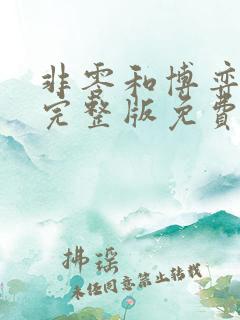 非零和博弈
完整版免費
拂瑶
未经同意禁止转载